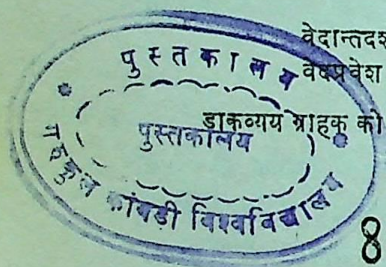 वेदान्तदश
वेदप्रवेश
डाकव्यय ग्राहक को
पुस्तकालय
पुस्तकालय
गुरुकुल कांगडी विश्वविद्यालय
8